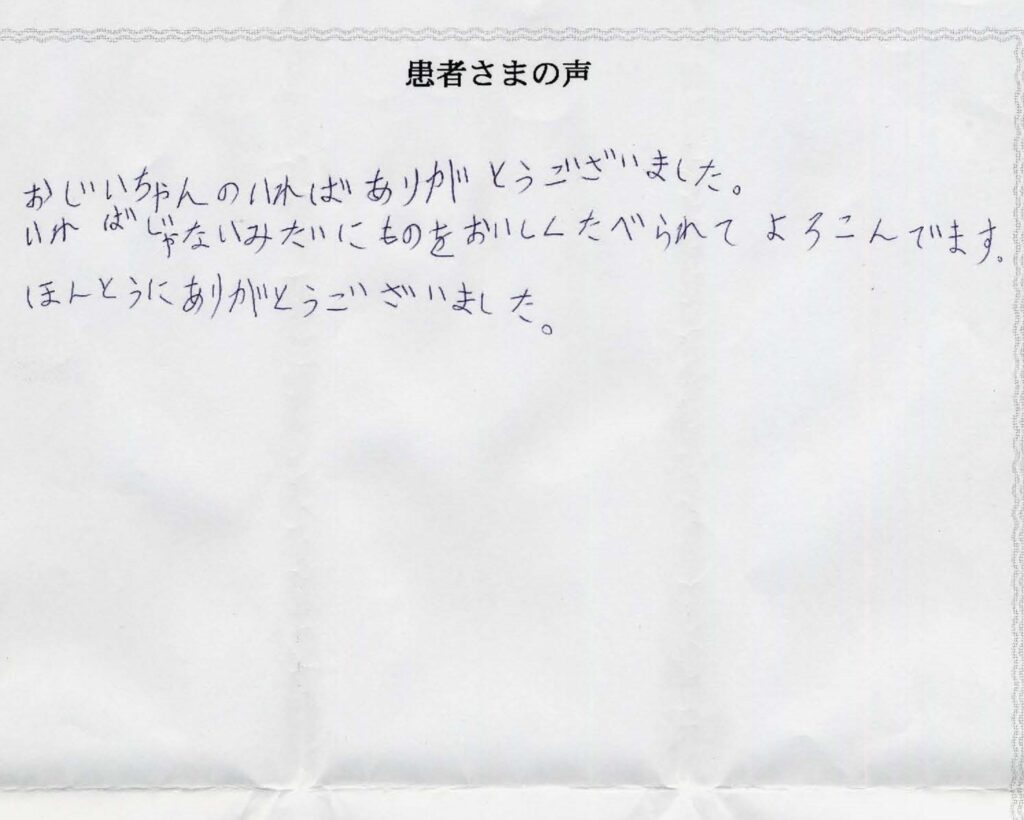 患者さまの声
おじいちゃんのいればありがとうございました。
いればじゃないみたいにものをおいしくたべられてよろこんでます。
ほんとうにありがとうございました。